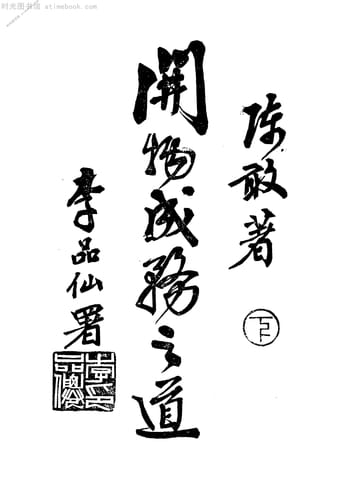 时光图书馆 atimebook.com
陈敢著
下
開物成務之道
李品仙署
李品僊印